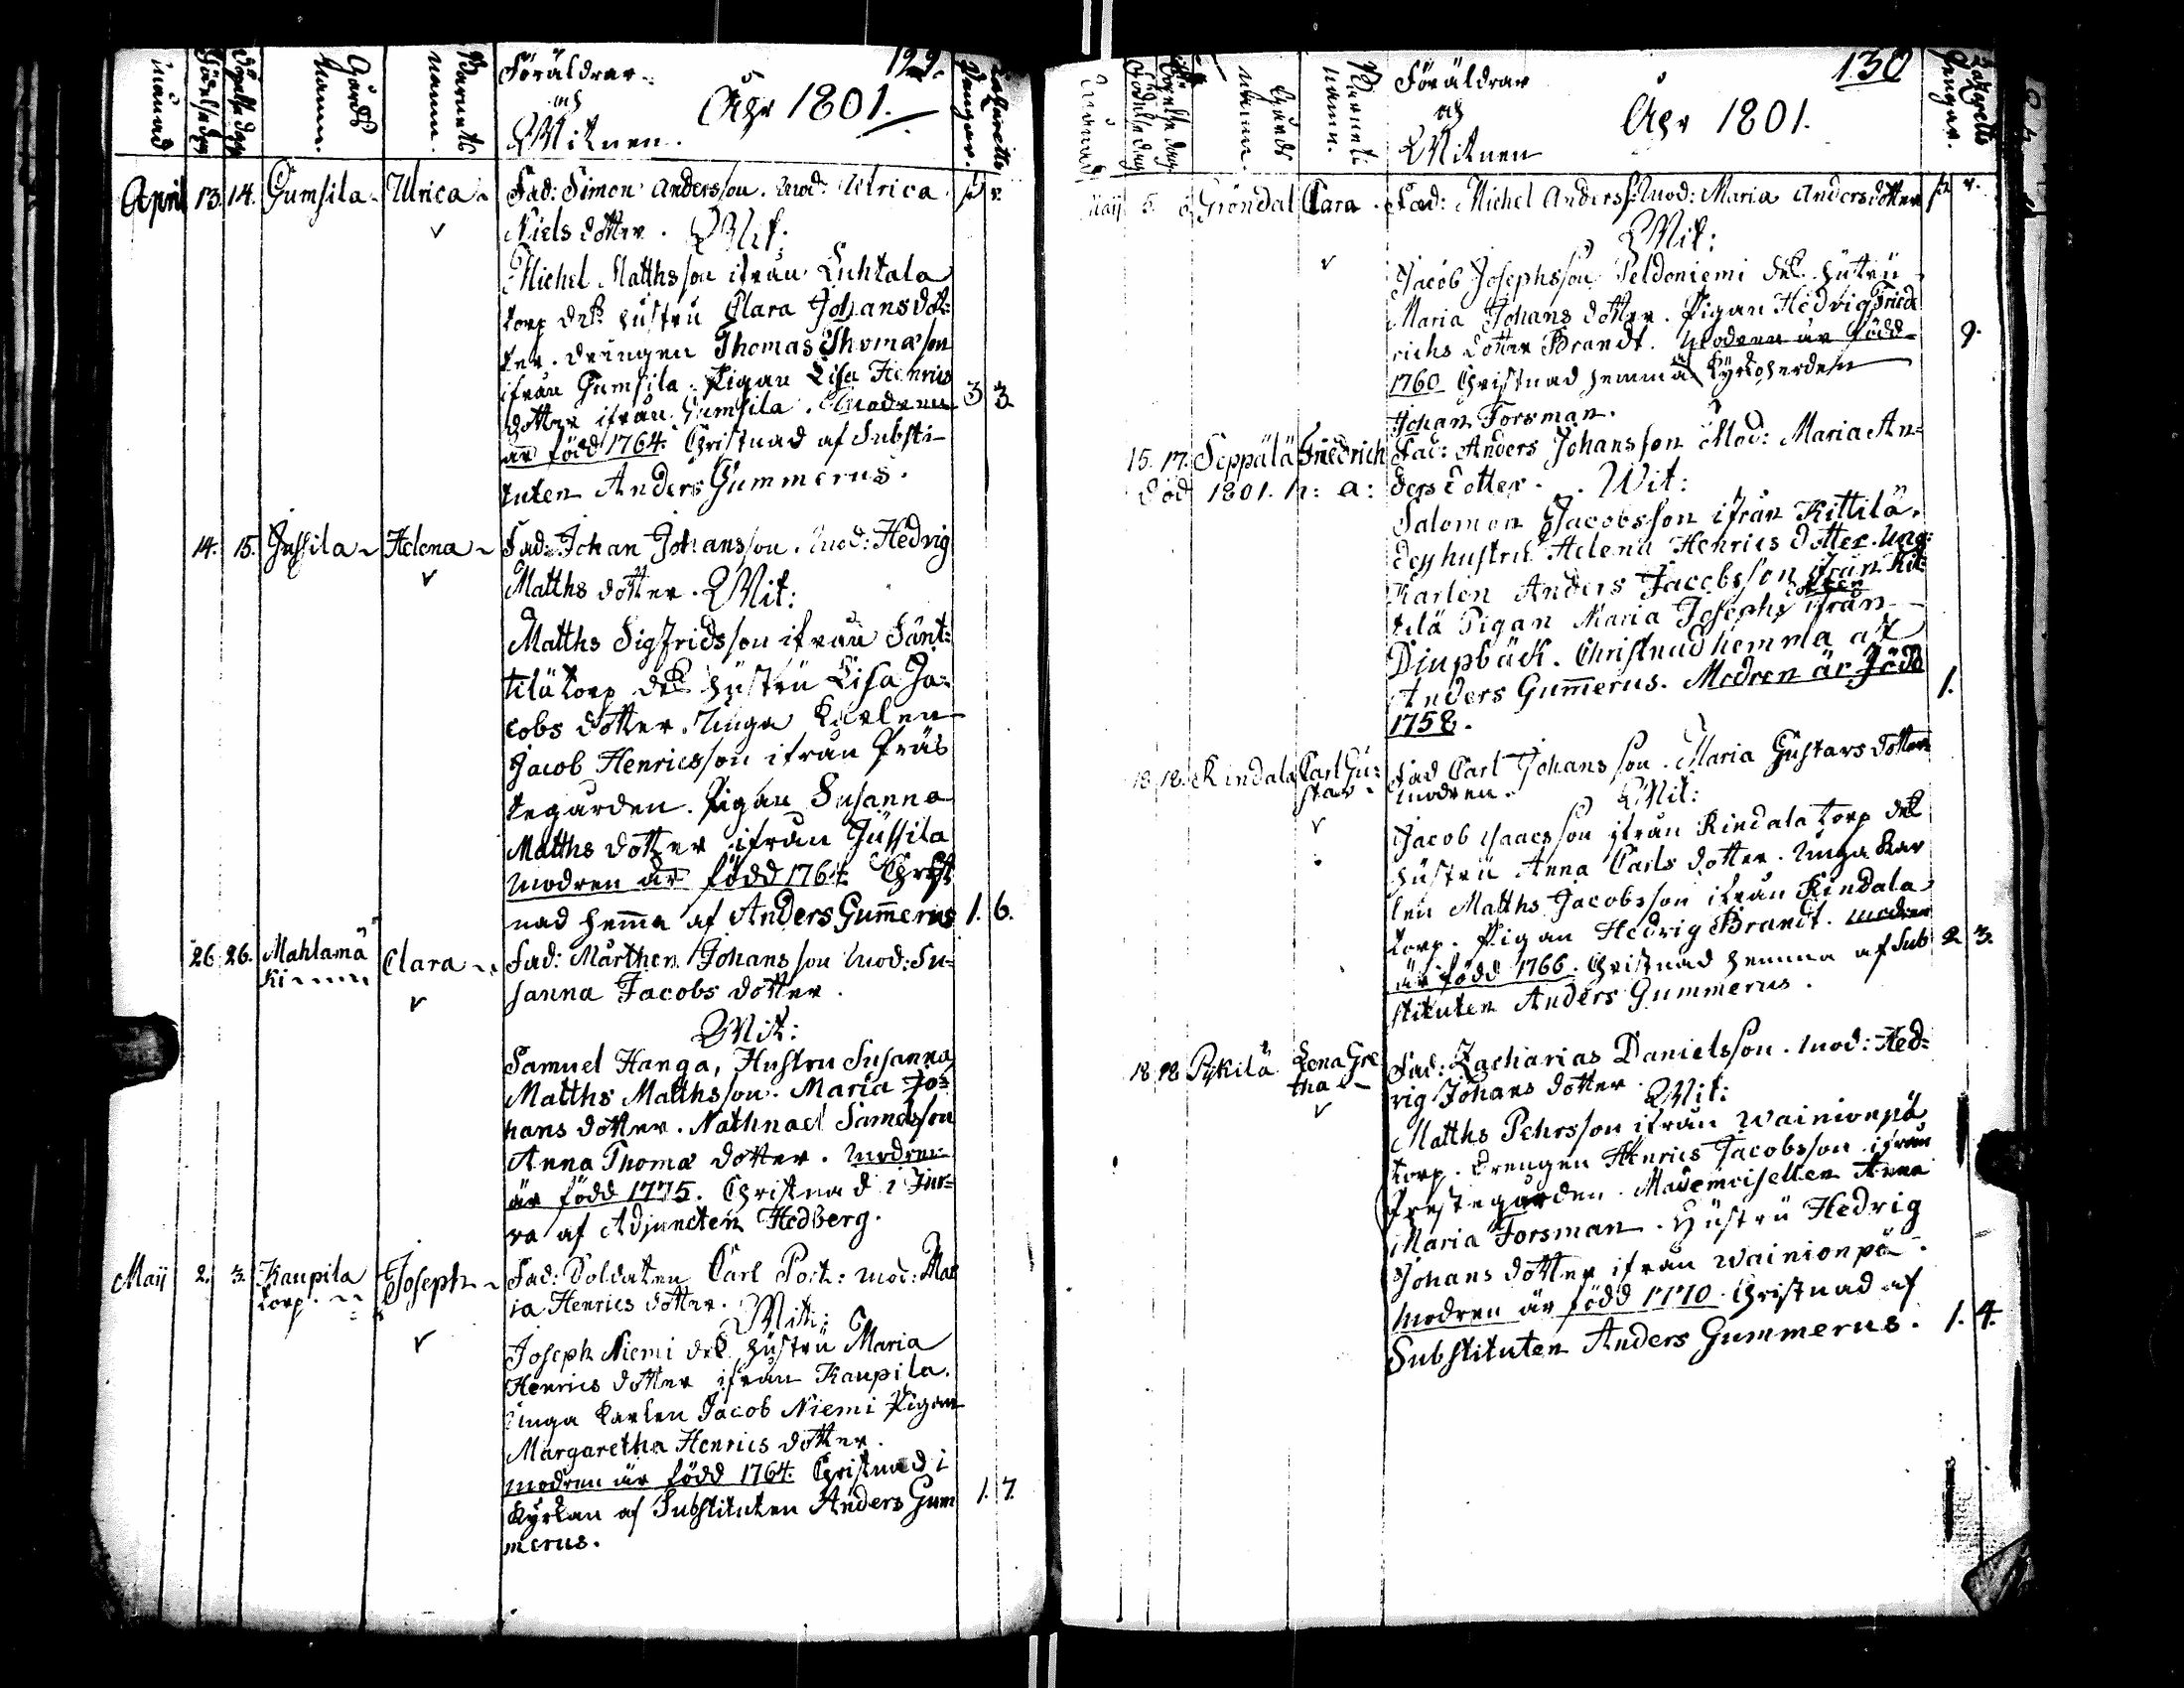 129.
månad
Födelse dag
Döpelse dag
Gårds Namn.
Barnets namn.
Föräldrar
och
Witnen.
Åhr 1801.
Lazaretts Pengar.
April 13. 14. Gumsila Ulrica Fad: Simon Andersson. Mod: Ulrica
Niels dotter. Wit:
Michel Matthsson ifrån Luhtala
torp dess hustru Clara Johansdot:
ter. drängen Thomas Thomasson
ifrån Gumsila. Pigan Lisa Henrics
dotter ifrån Gumsila. Modren 3 3.
är född 1764. Christnad af Substi-
tuten Anders Gummerus.
14. 15. Jussila Helena Fad: Johan Johansson. Mod: Hedvig
Matths dotter. Wit:
Matths Sigfridsson ifrån Sänt:
tilä torp dess hustru Lisa Ja:
cobs dotter. Unga Karlen
Jacob Henricsson ifrån Präs
tegården. Pigan Susanna
Matths dotter ifrån Jussila
modren är född 1764. Christ
nad hemma af Anders Gum̄erus 1. 6.
26. 26. Mahlamä
ki Clara Fad: Mårthen Johansson Mod: Su=
sanna Jacobs dotter.
Wit:
Samuel Hanga, Hustru Susanna
Matths Matthsson. Maria Jo=
hans dotter. Nathnael Samelsson
Anna Thomæ dotter. Modren
är född 1775. Christnad i Jur=
va af Adjuncten Hedberg.
Maij 2. 3. Kaupila
torp. Joseph Fad: Soldaten Carl Port: mod: Mar
ia Henrics dotter. Wit:
Joseph Niemi dess hustru Maria
Henrics dotter ifrån Kaupila.
Unga Karlen Jacob Niemi Pigan
Margaretha Henrics dotter.
modren är född 1764. Christnad i
Kyrkan af Substituten Anders Gum 1. 7.
merus.
130
månad
Födelse dag
Döpelse dag
Gårds namn.
Barnets namn.
Föräldrar
och
Witnen
Åhr 1801.
Lazaretts Pengar.
Maij 5. 6. Gröndal Clara Fad: Michel Anderss: Mod: Maria Andersdotter
Wit:
Jacob Josephsson Peldoniemi dess hustru
Maria Johans dotter. Pigan Hedvig Fried
richs dotter Brandt. Modren är född 9.
1760 Christnad hemma af Kyrkoherden
Johan Forsman.
15. 17. Seppälä Friedrich Fad: Anders Johansson Mod: Maria An=
död 1801. h: a: ders dotter. Wit:
Salomon Jacobsson ifrån Kittilä.
dess hustru Helena Henrics dotter. Ung:
Karlen Anders Jacobsson ifrån Kit:
tilä Pigan Maria Josephs dotter ifrån
Diupbäck. Christnad hemma af
Anders Gum̄erus. Modren är född 1.
1758.
18. 18. Rindala Carl Gu:
stav Fad Carl Johansson. Maria Gustavs dotter
modren. Wit:
Jacob Isaacsson ifrån Rindala torp dess
hustru Anna Carls dotter. Unga Kar
len Matths Jacobsson ifrån Rindala
torp. Pigan Hedvig Brandt. modren
är född 1766. Christnad hemma af Sub 2 3.
stituten Anders Gummerus.
18 18 Pykilä Lena Gre
tha Fad: Zacharias Danielsson. Mod: Hed=
vig Johans dotter. Wit:
Matths Pehrsson ifrån Wainionpä
torp. drengen Henrics Jacobsson ifrån
Prestegården. Mademoisellen Anna
Maria Forsman. Hustru Hedvig
Johans dotter ifrån Wainionpä.
modren är född 1770. Christnad af
Substituten Anders Gummerus. 1. 4.